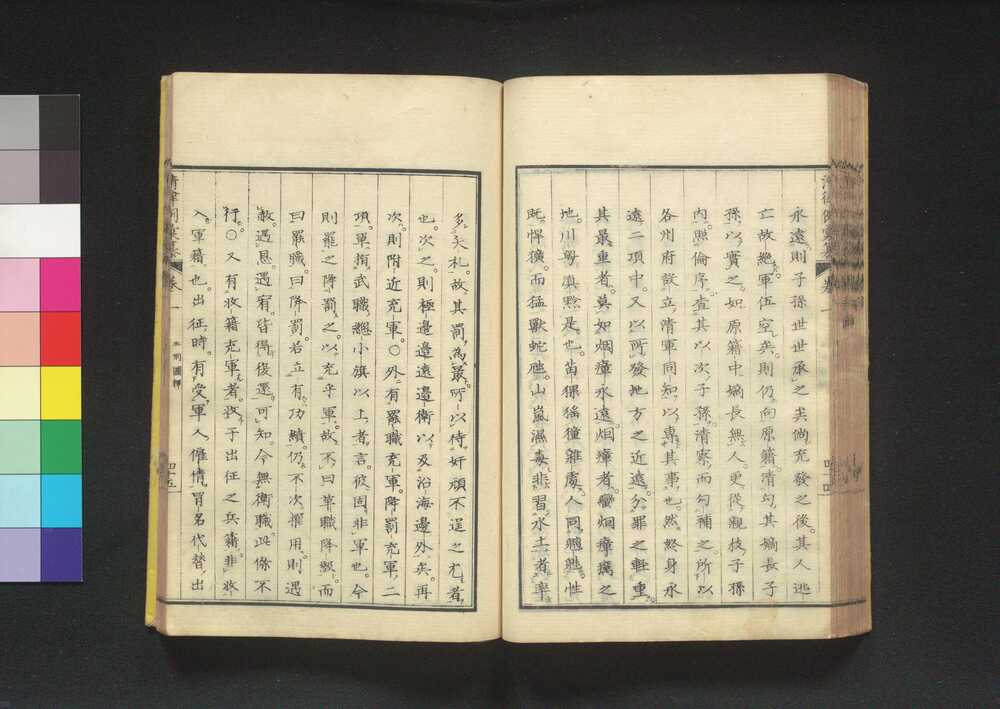 永遠則子孫世世承之矣倘充發之後其人逃
亡故絶軍伍空矣則仍向原籍清勾其嫡長子
孫以實之如原籍中嫡長無人更從親枝子孫
内照倫序查其以次子孫清察而勾補之所以
各州府設立清軍同知以專其事也然終身永
遠二項中又以所發地方之近遠分罪之輕重
其最重者莫如烟瘴永遠烟瘴者蠻烟瘴癘之
地川粤滇黔是也苗猓猺獞雜處人同魑魅性
既悍獷而猛獸蛇虺山嵐濕毒非習水土者率
多夭札故其罰為最所以待奸頑不逞之尤者
也次之則極邊邊遠邊衛以及沿海邊外矣再
次則附近充軍○外有罷職充軍降罰充軍二
項軍指武職總小旗以上者言彼固非軍也今
則罷之降罰之以充乎軍故不曰革職降級而
曰罷職曰降罰若立有功績仍不次擢用則遇
赦遇恩遇宥皆得復還可知今無衛職此條不
行○又有收籍充軍者收于出征之兵籍非收
入軍籍也出征時有受軍人僱倩冒名代替出
清律例彙纂
卷一
五刑圖釋
四十五
四十四